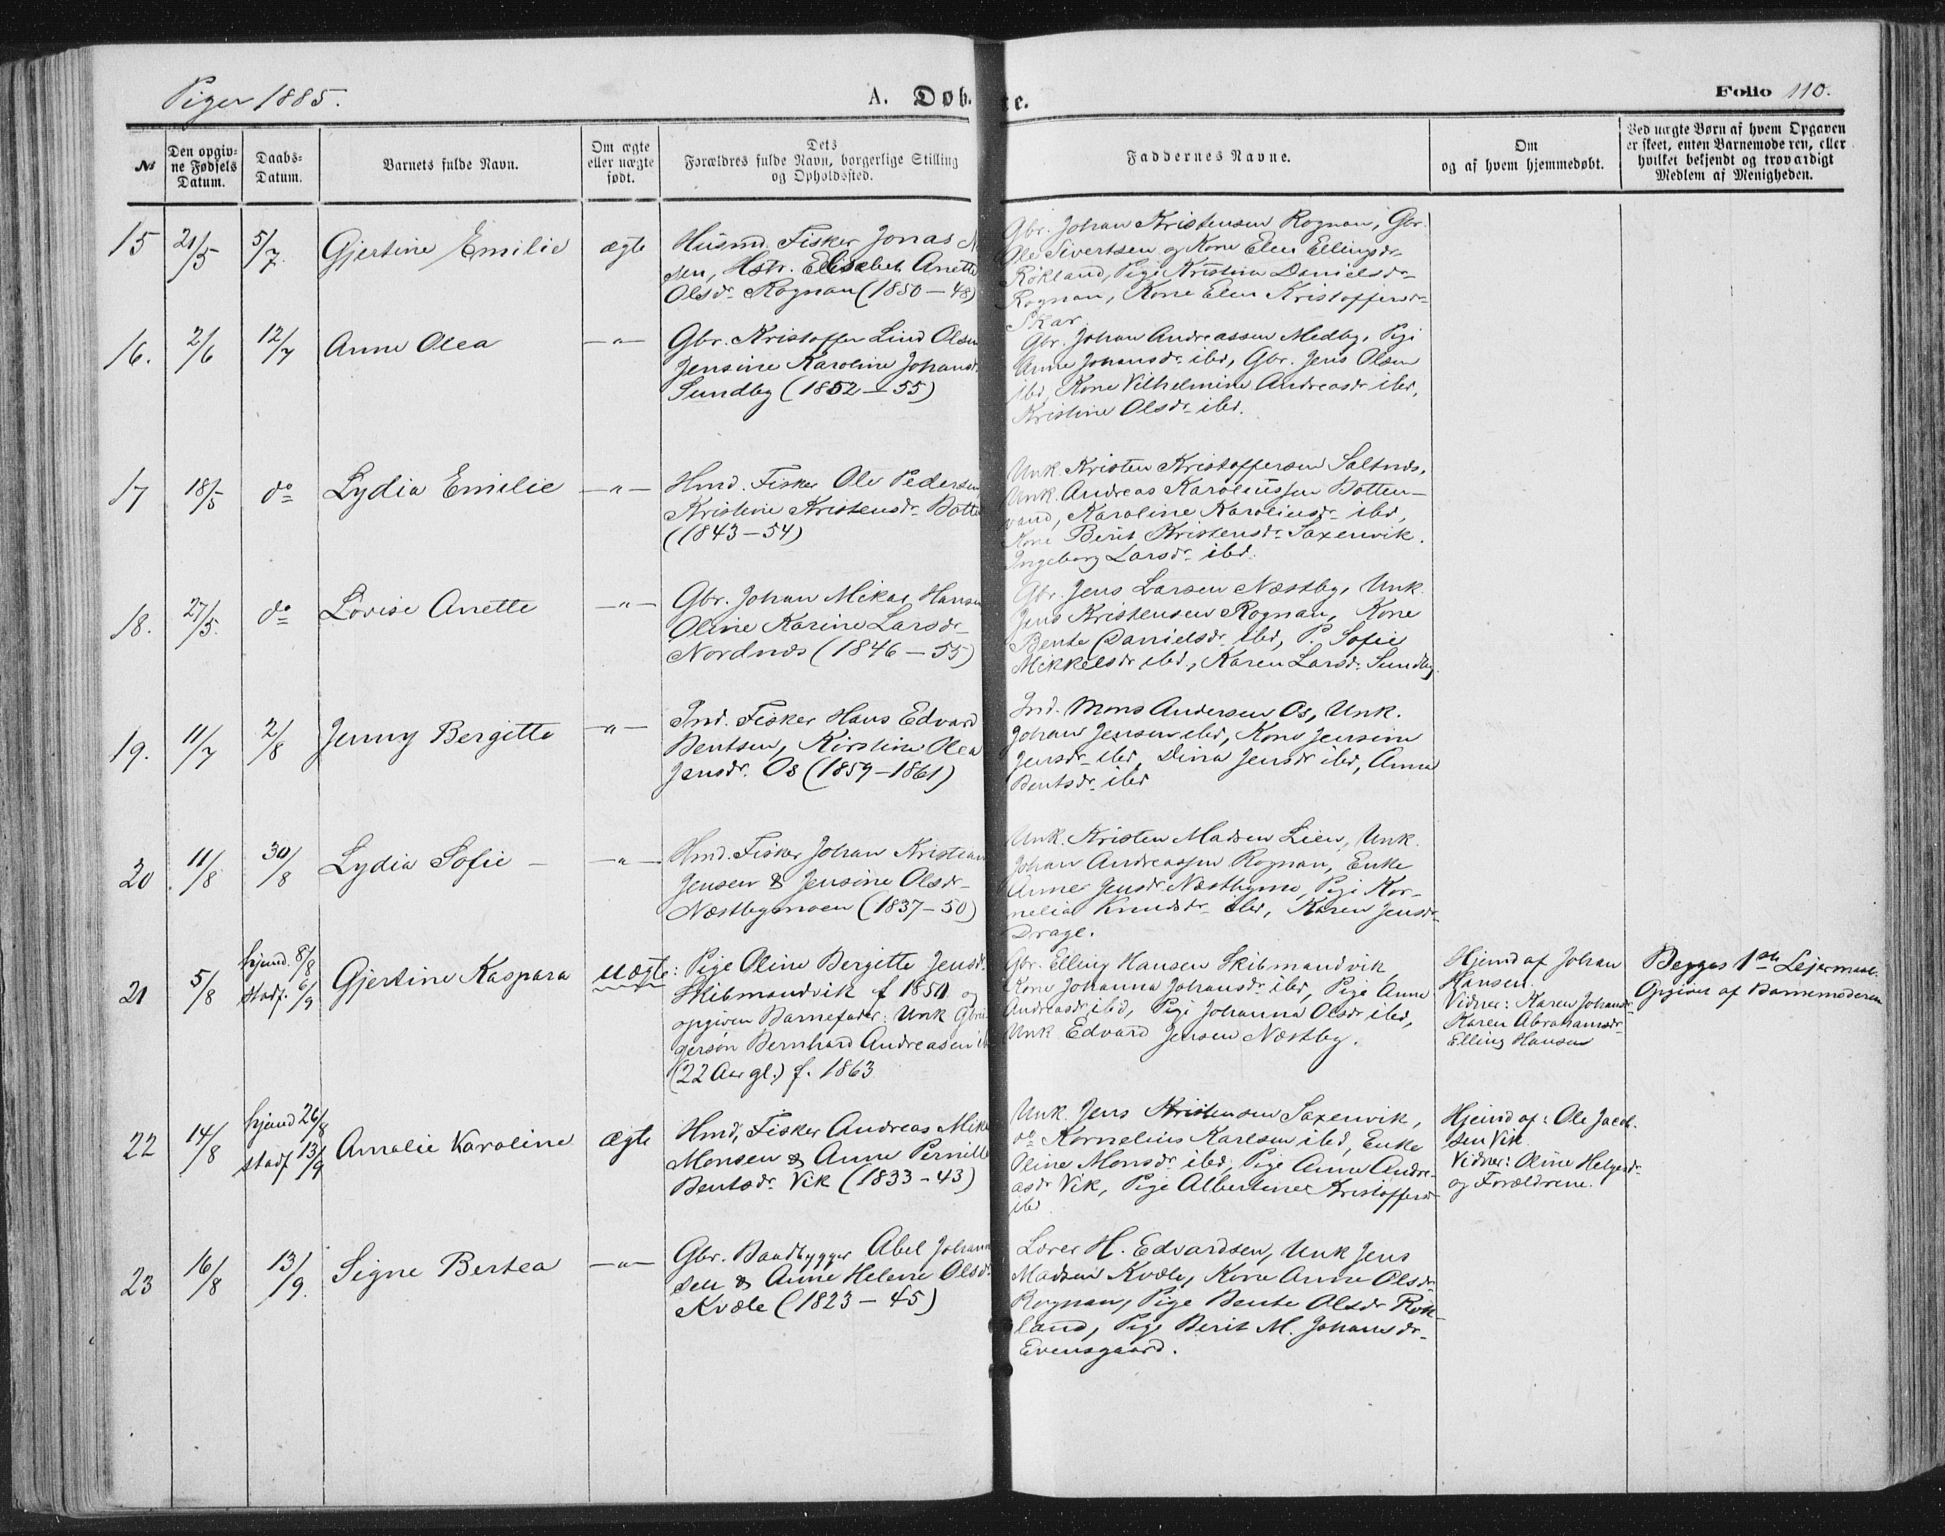 Piger 1885.
A. Døb te.
Folio 110.
No
Den opgiv-
ne Fødsels
Datum.
Daabs-
Datum.
Barnets fulde Navn.
Om ægte
eller uægte
født.
Dets
Forældres fulde Navn, borgerlige Stilling
og Opholdssted.
Faddernes Navne.
Om
og af hvem hjemmedøbt.
Ved uægte Børn af hvem Opgaven
er skeet, enten Barnemoderen, eller
hvilket bekjendt og troværdigt
Medlem af Menigheden.
15 21/5 5/7. Gjertine Emilie ægte
Husmd. Fisker Jonas
sen, Hstr. Elisabet Anette
Olsdr. Rognan (1850-48)
Gbr. Johan Kristensen Rognan, Gbr.
Ole Sivertsen og Kone Elen Ellingsdr
Rökland, Pige Kristina Danielsdr
Rognan, Kone Elen Kristoffersdr
Skar.
16. 2/6 12/7 Anne Olea —"—
Gbr. Kristoffer Lind Olsen
Jensine Karoline Johansd.
Sundby (1852-55)
Gbr. Johan Andreassen Medby, Pige
Anne Johansdr. ibd, Gbr. Jens Olsen
ibd, Kone Vilhelmine Andreasdr ibd,
Kristine Olsdr ibd.
17 18/5 do Lydia Emilie —"—
Hmd. Fisker Ole Pedersen
Kristine Kristensdr. Botte
(1843-54)
Unk. Kristen Kristoffersen Saltnæs,
Unk. Andreas Karoliussen Botten-
vand, Karoline Karoliusdr ibd,
Kone Berit Kristensdr Saxenvik.
Ingeborg Larsdr ibd.
18. 27/5. do Lovise Anette —"—
Gbr. Johan Mikal Hansen
Oline Karine Larsdr
Nordnæs (1846-55)
Gbr. Jens Larsen Næstby, Unk.
Jens Kristensen Rognan, Kone
Bente Danielsdr. ibd, P. Sofie
Mikkelsdr ibd, Karen Larsdr. Sundby
19. 11/7 2/8 Jenny Bergitte —"—
Ind. Fisker Hans Edvard
Bentsen, Kirstine Olea
Jensdr. Os (1859-1861)
Ind. Mons Andersen Os, Unk.
Johan Jensen ibd, Kone Jensine
Jensdr ibd, Dina Jensdr ibd, Anna
Bentsdr ibd
20 11/8 30/8 Lydia Sofie — —"—
Hmd. Fisker Johan Kristian
Jensen & Jensine Olsdr
Næstbymoen (1837-50)
Unk. Kristen Madsen Lien, Unk.
Johan Andreassen Rognan, Enke
Anne Jensdr. Næstbymo, Pige Kor-
nelia Knudsdr ibd, Karen Jensdr
Drage.
21 5/8 hjemd. 8/8
stadf. 6/9 Gjertine Kaspara uægte:
Pige Oline Bergitte Jensdr.
Skibmandvik f 1851 og
opgiven Barnefader: Unk Gbru-
gersøn Bernhard Andreasen ib
(22 Aar gl.) f. 1863
Gbr. Elling Hansen Skibmandvik,
Kone Johanna Johansdr ibd, Pige Anne
Andreasdr ibd, Pige Johanna Olsdr ibd,
Unk Edvard Jensen Næstby.
Hjemd af Johan
Hansen.
Vidner: Karen Johansdr.
Karen Abrahamsdr
Elling Hansen
Begges 1ste Lejermaal.
Opgivet af Barnemoderen
22 14/8 hjemd 26/8
stadf 13/9 Amalie Karoline ægte
Hmd, Fisker Andreas Mik
Monsen & Anne Pernille
Bentsdr. Vik (1833-43)
Unk. Jens Kristensen Saxenvik,
do Kornelius Karlsen ibd, Enke
Oline Monsdr. ibd, Pige Anne Andre-
asdr Vik, Pige Albertine Kristoffersdr
ibd
Hjemd af: Ole Jacob-
sen Vik.
Vidner: Oline Helgesdr.
og Forældrene.
23 16/8 13/9. Signe Bertea —"—
Gbr. Baadbygger Abel Johan
sen & Anne Helene Olsdr
Kvæle (1823-45)
Lærer H. Edvardsen, Unk Jens
Madsen Kvæle, Kone Anne Olsdr
Rognan, Pige Bente Olsdr Røk-
land, Pige Berit M. Johansdr
Evensgaard.